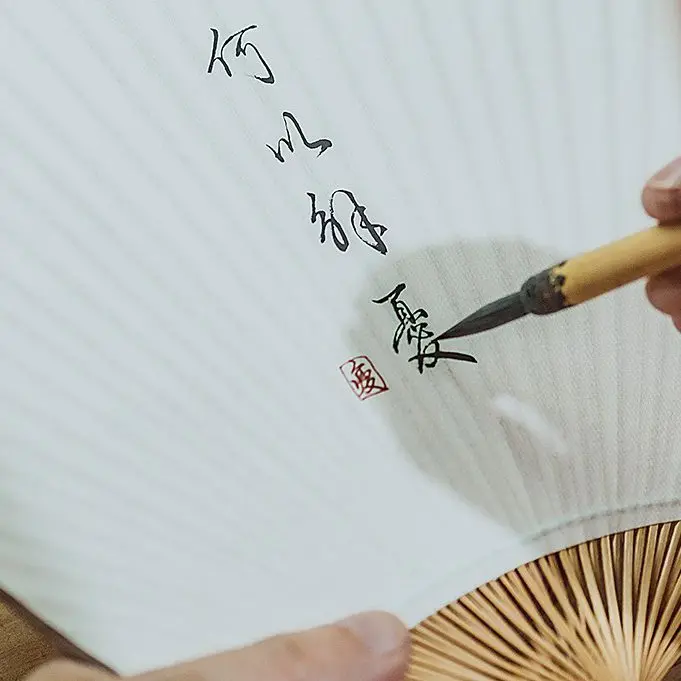 何以解憂